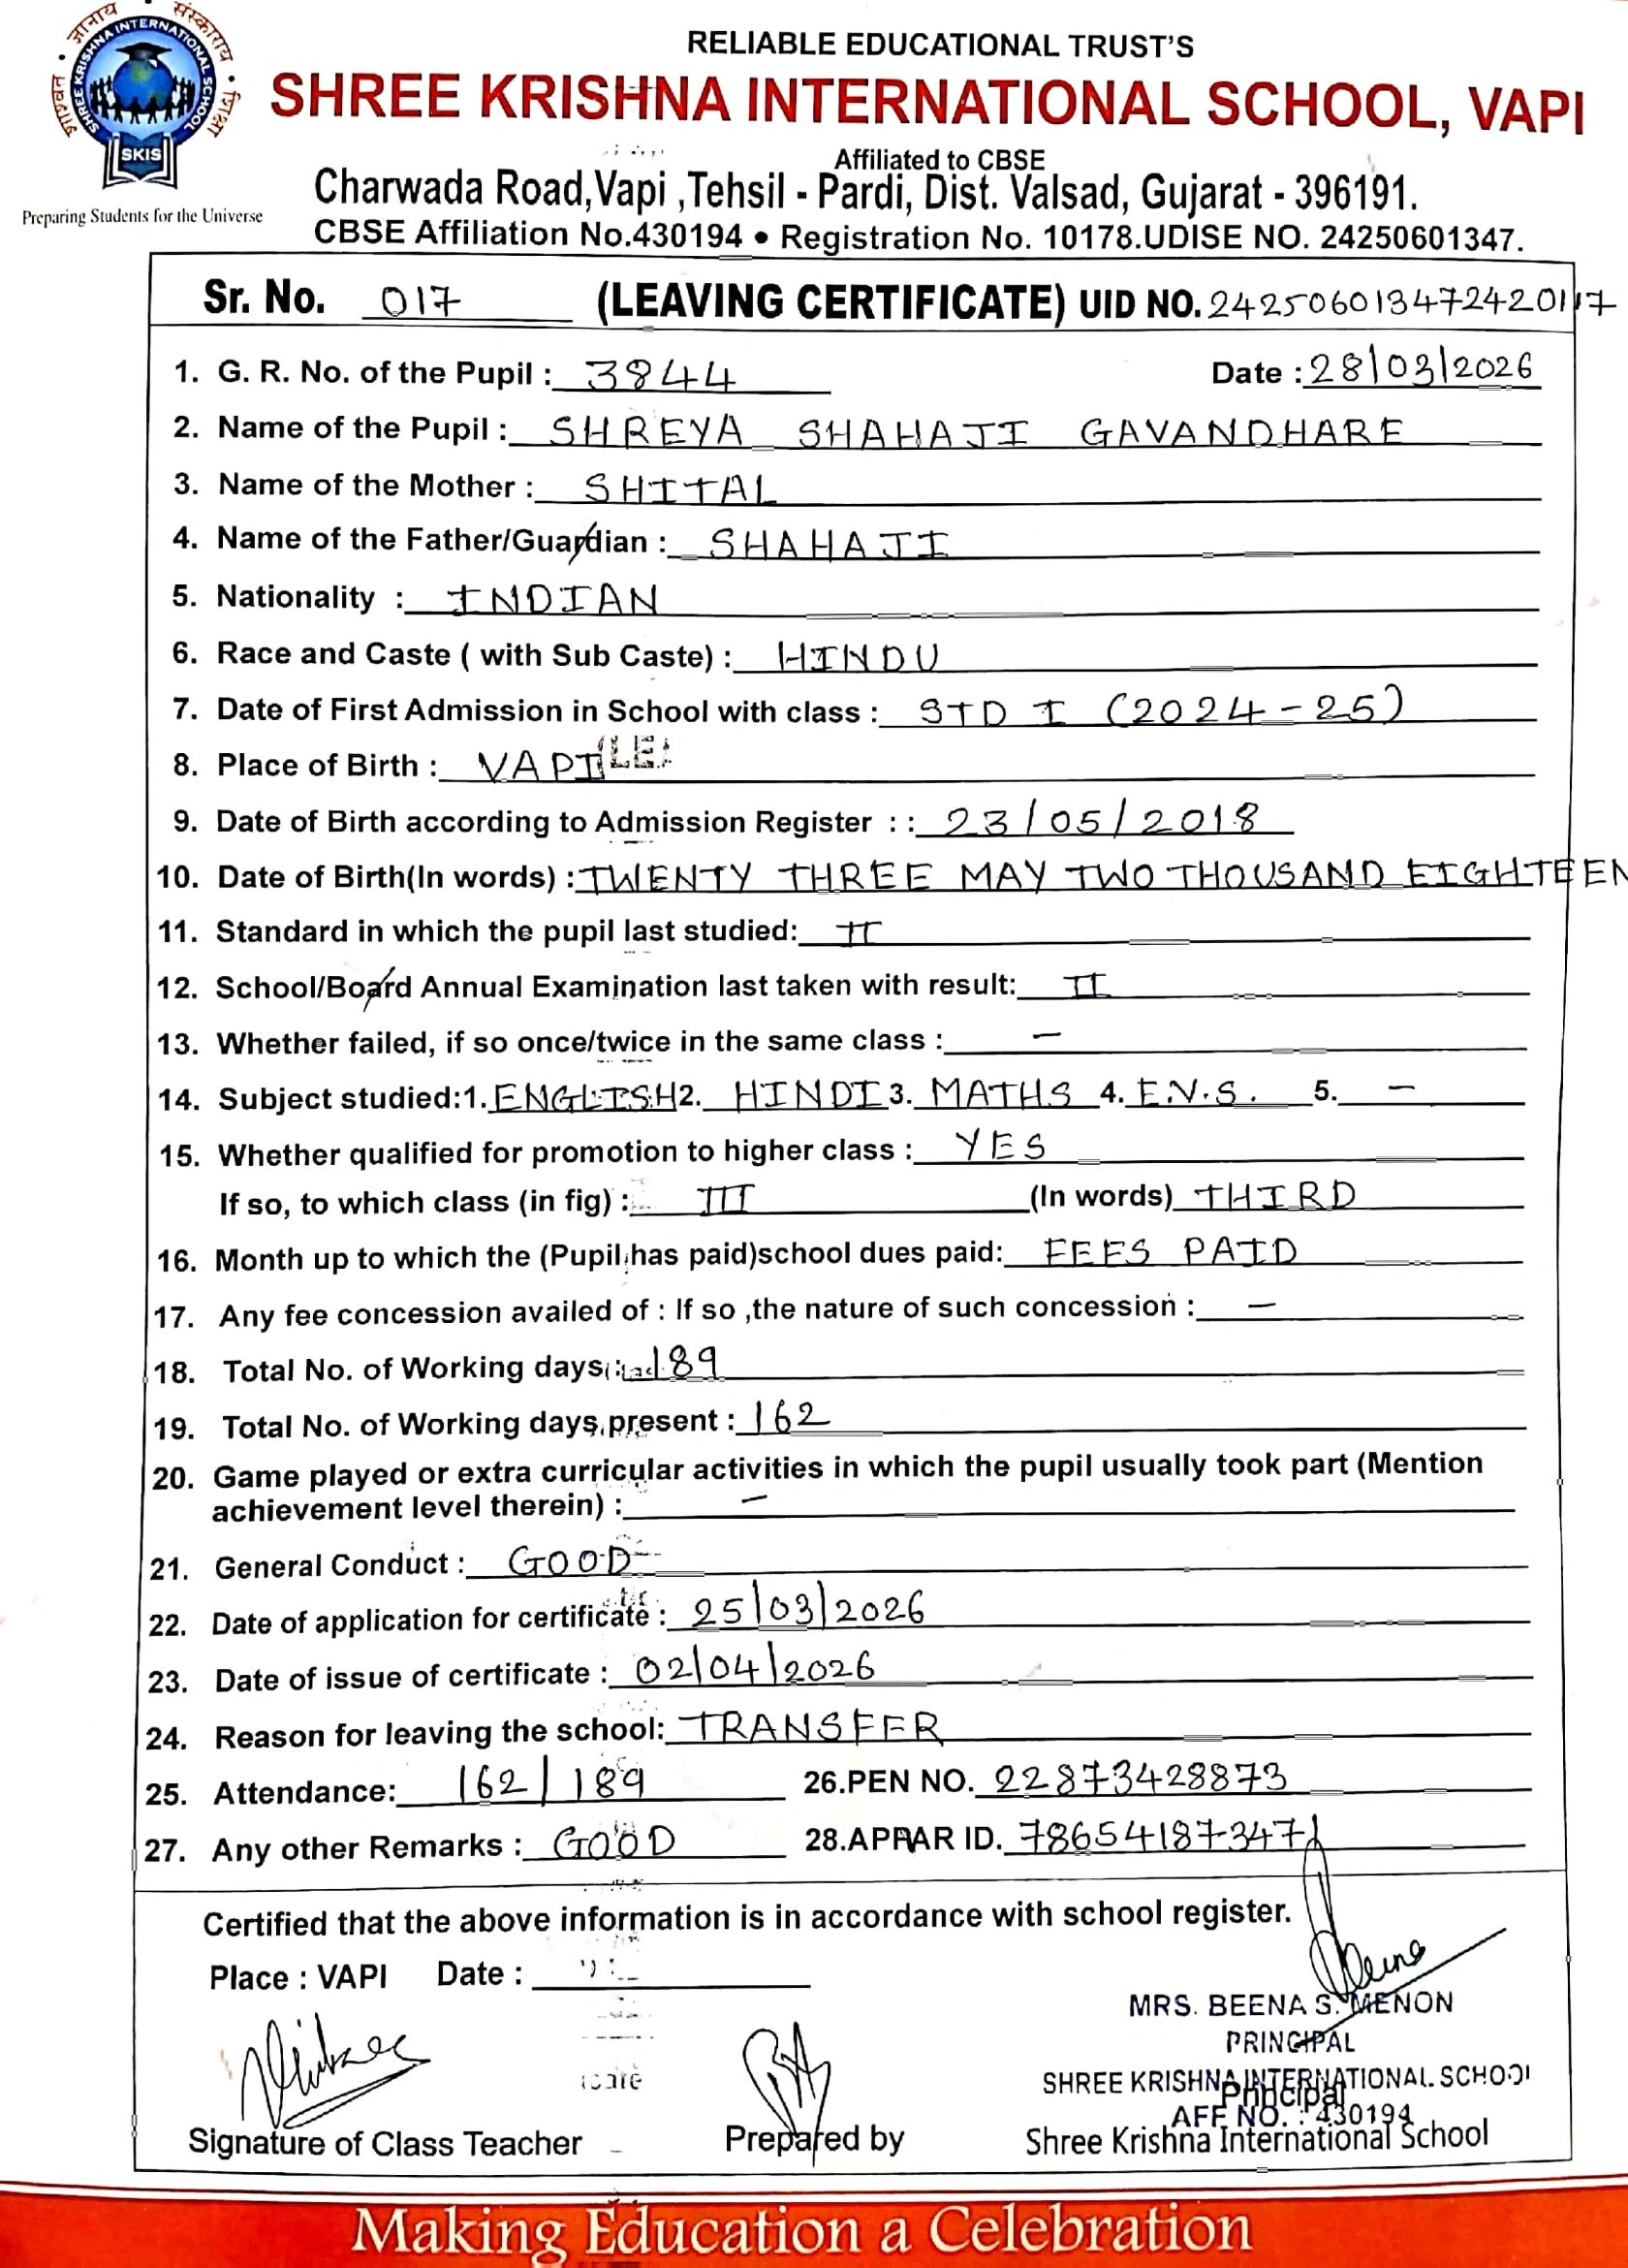 शाश्वत • ज्ञानाय • संस्काराय • शिक्षा
SHREE KRISHNA INTERNATIONAL SCHOOL
SKIS
Preparing Students for the Universe
RELIABLE EDUCATIONAL TRUST'S
SHREE KRISHNA INTERNATIONAL SCHOOL, VAPI
Affiliated to CBSE
Charwada Road,Vapi ,Tehsil - Pardi, Dist. Valsad, Gujarat - 396191.
CBSE Affiliation No.430194 • Registration No. 10178.UDISE NO. 24250601347.
Sr. No. 017 (LEAVING CERTIFICATE) UID NO. 242506013472420117
1. G. R. No. of the Pupil : 3844 Date : 28|03|2026
2. Name of the Pupil : SHREYA SHAHAJI GAVANDHARE
3. Name of the Mother : SHITAL
4. Name of the Father/Guardian : SHAHAJI
5. Nationality : INDIAN
6. Race and Caste ( with Sub Caste) : HINDU
7. Date of First Admission in School with class : STD I (2024-25)
8. Place of Birth : VAPI
9. Date of Birth according to Admission Register : : 23/05/2018
10. Date of Birth(In words) : TWENTY THREE MAY TWO THOUSAND EIGHTEEN
11. Standard in which the pupil last studied: II
12. School/Board Annual Examination last taken with result: II
13. Whether failed, if so once/twice in the same class : –
14. Subject studied:1. ENGLISH 2. HINDI 3. MATHS 4. E.V.S. 5. –
15. Whether qualified for promotion to higher class : YES
If so, to which class (in fig) : III (In words) THIRD
16. Month up to which the (Pupil has paid)school dues paid: FEES PAID
17. Any fee concession availed of : If so ,the nature of such concession : –
18. Total No. of Working days : 189
19. Total No. of Working days present : 162
20. Game played or extra curricular activities in which the pupil usually took part (Mention
achievement level therein) : –
21. General Conduct : GOOD
22. Date of application for certificate : 25|03|2026
23. Date of issue of certificate : 02|04|2026
24. Reason for leaving the school: TRANSFER
25. Attendance: 162|189 26.PEN NO. 22873428873
27. Any other Remarks : GOOD 28.APAAR ID. 786541873471
Certified that the above information is in accordance with school register.
Place : VAPI Date :
MRS. BEENA S. MENON
PRINCIPAL
SHREE KRISHNA INTERNATIONAL SCHOOL
Principal
AFF NO. : 430194
Signature of Class Teacher Prepared by Shree Krishna International School
Making Education a Celebration